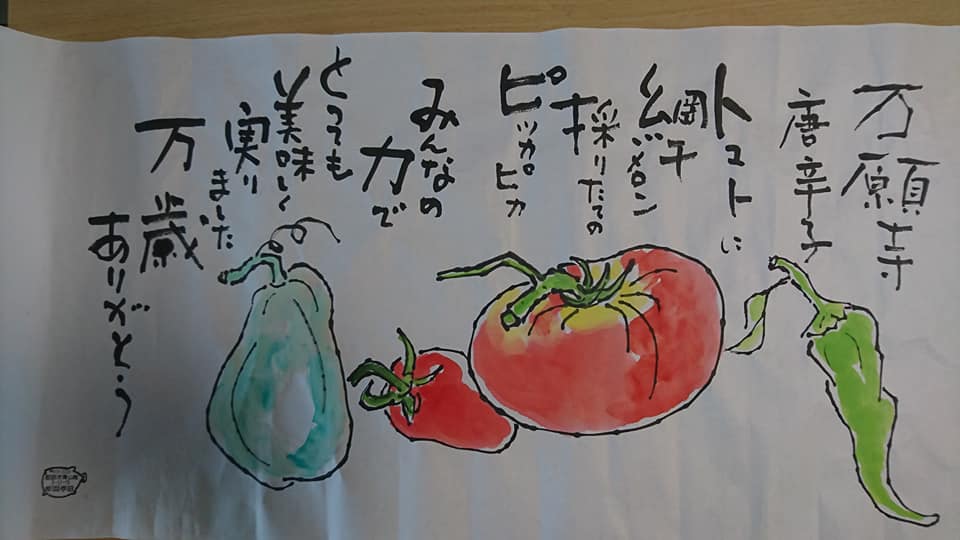 万願寺
唐辛子
トマトに
網干メロン
採りたての
ピッカピカ
みんなの
力で
とっても
美味しく
実り
ました
万歳
ありがとう